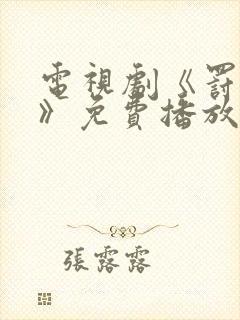 電視劇《罰
》免費播放
張露露